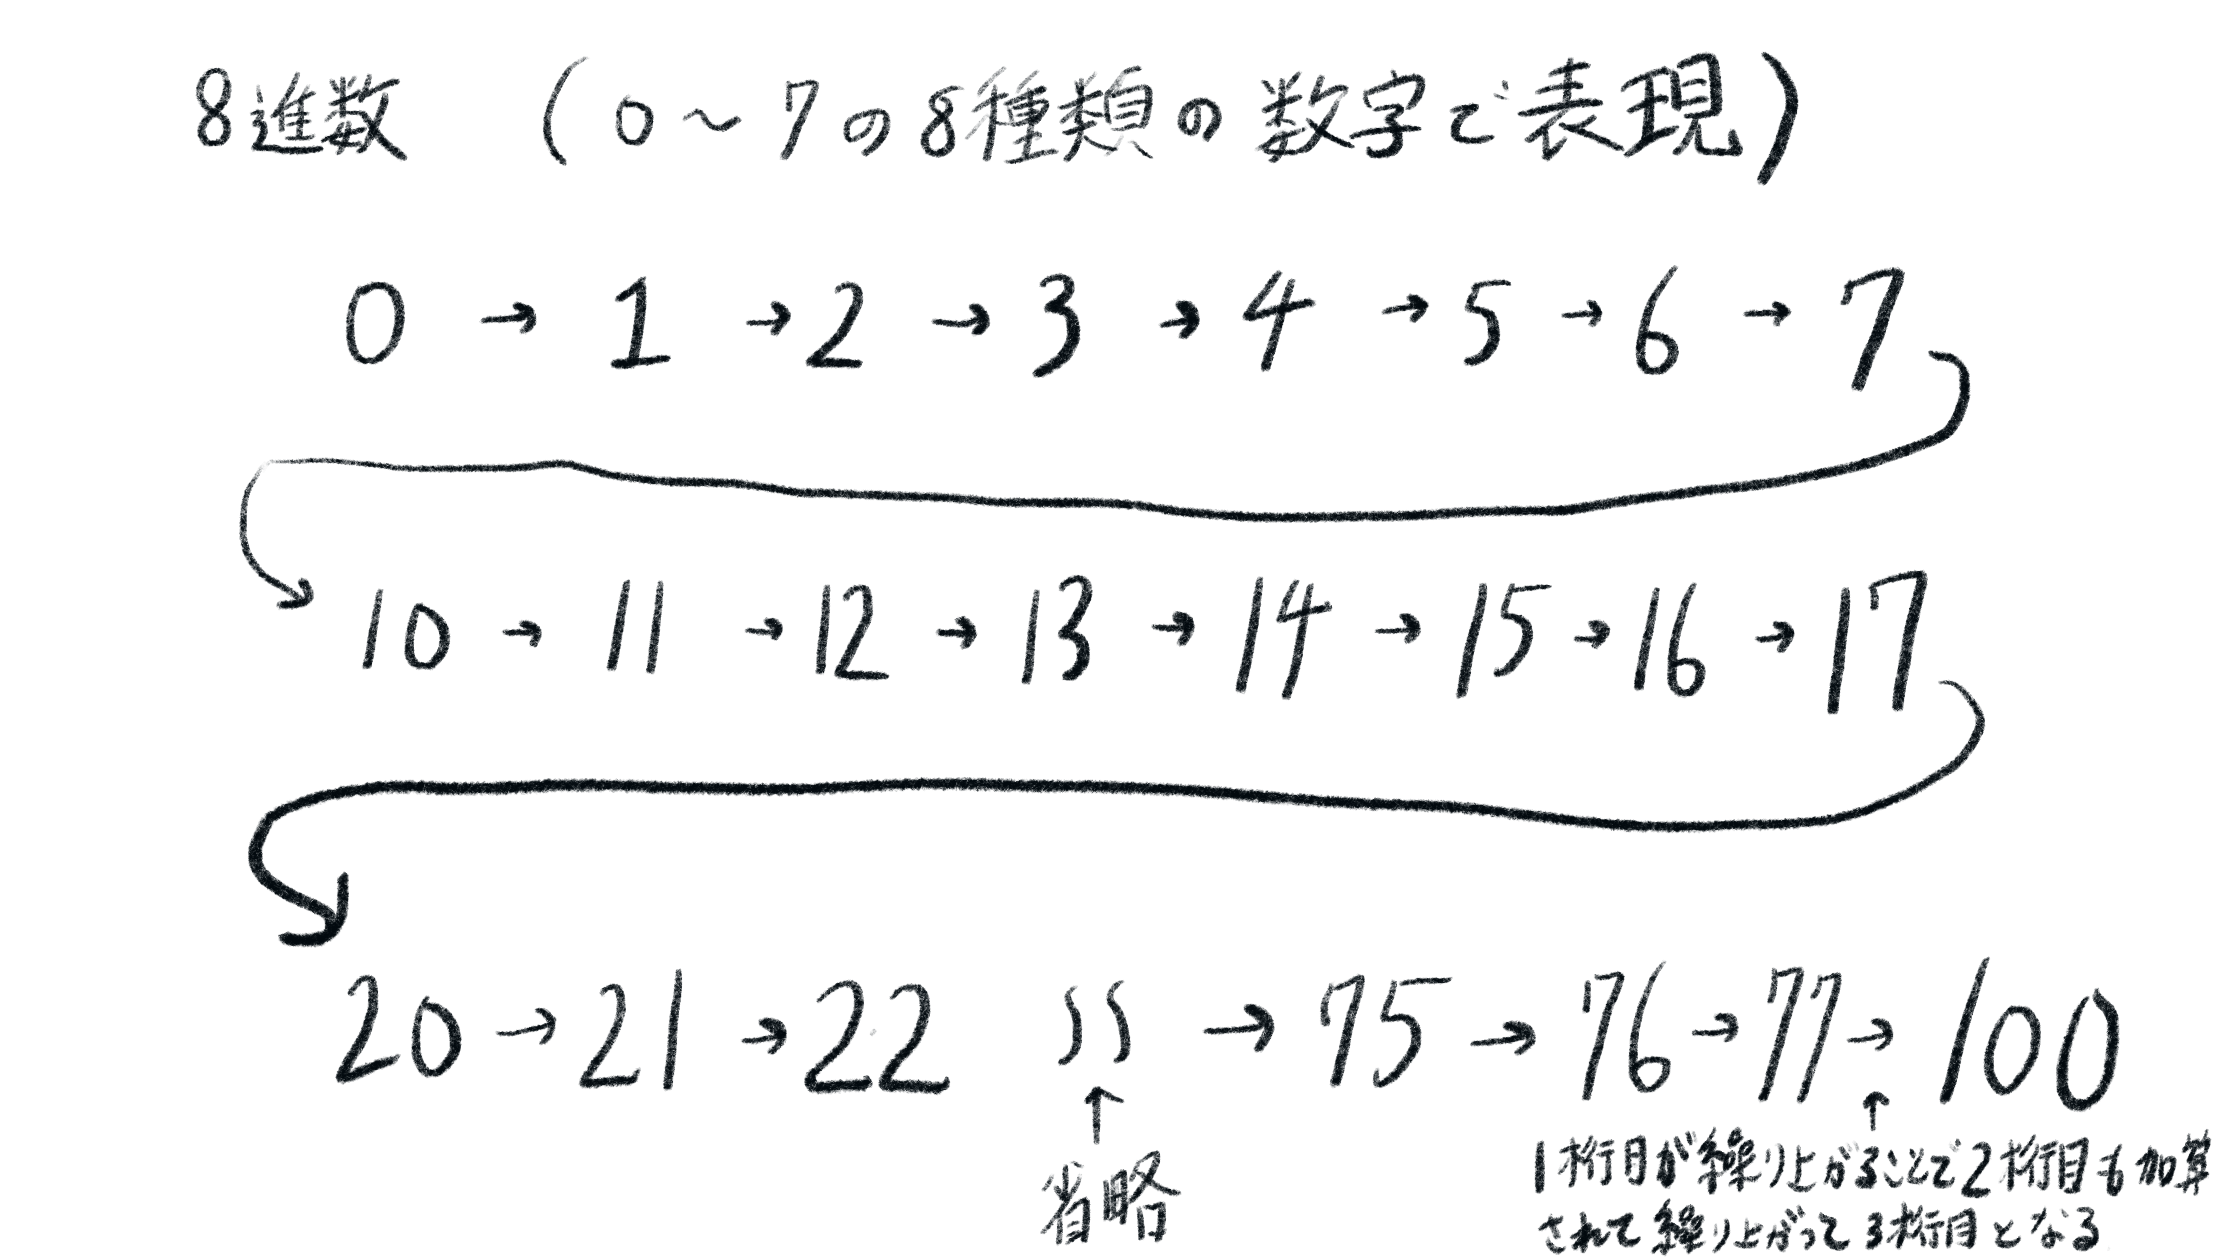 8進数 (0〜7の8種類の数字で表現)
0 → 1 → 2 → 3 → 4 → 5 → 6 → 7
10 → 11 → 12 → 13 → 14 → 15 → 16 → 17
20 → 21 → 22 → 75 → 76 → 77 → 100
↑
省略
↑
1桁目が繰り上がることで2桁目も加算
されて繰り上がって3桁目となる